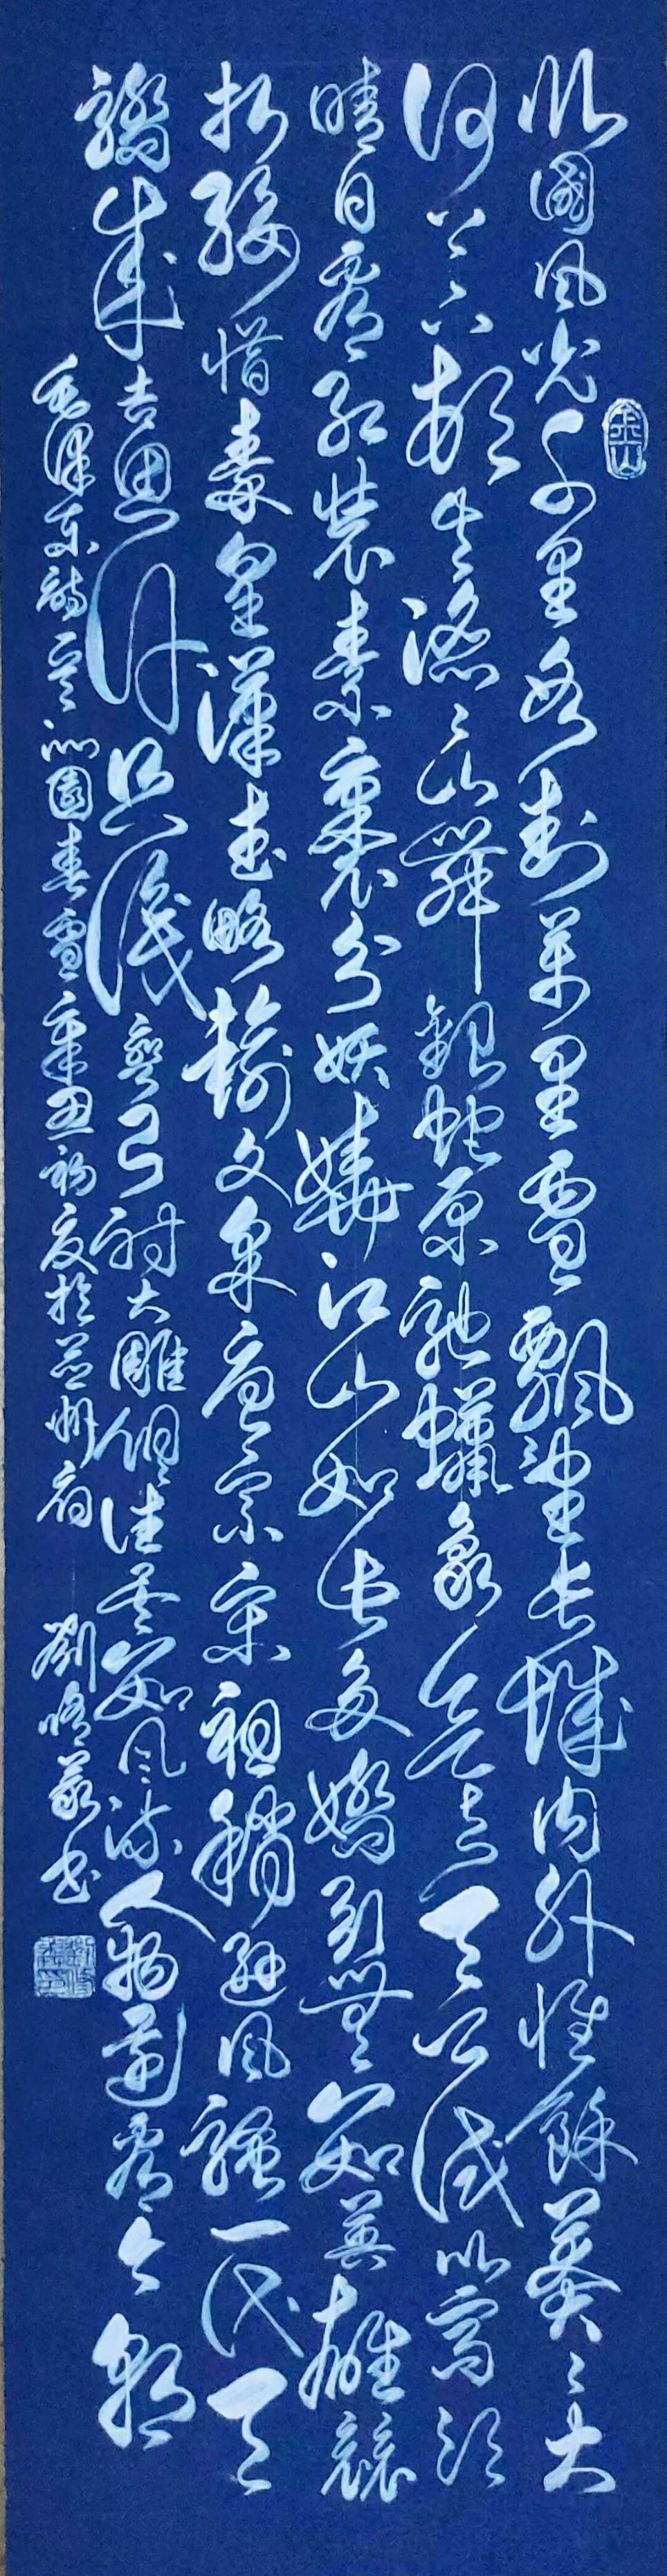 北國風光千里冰封萬里雪飄望長城內外惟餘莽〻大
河上下頓失滔〻山舞銀蛇原馳蠟象欲與天公試比高須
晴日看紅裝素裹分妖嬈江山如此多嬌引無數英雄競
折腰惜秦皇漢武略輸文采唐宗宋祖稍遜風騷一代天
驕成吉思汗只識彎弓射大雕俱往矣數風流人物還看今朝
毛澤東詩詞沁園春雪辛丑初夏於
劉 書
金山